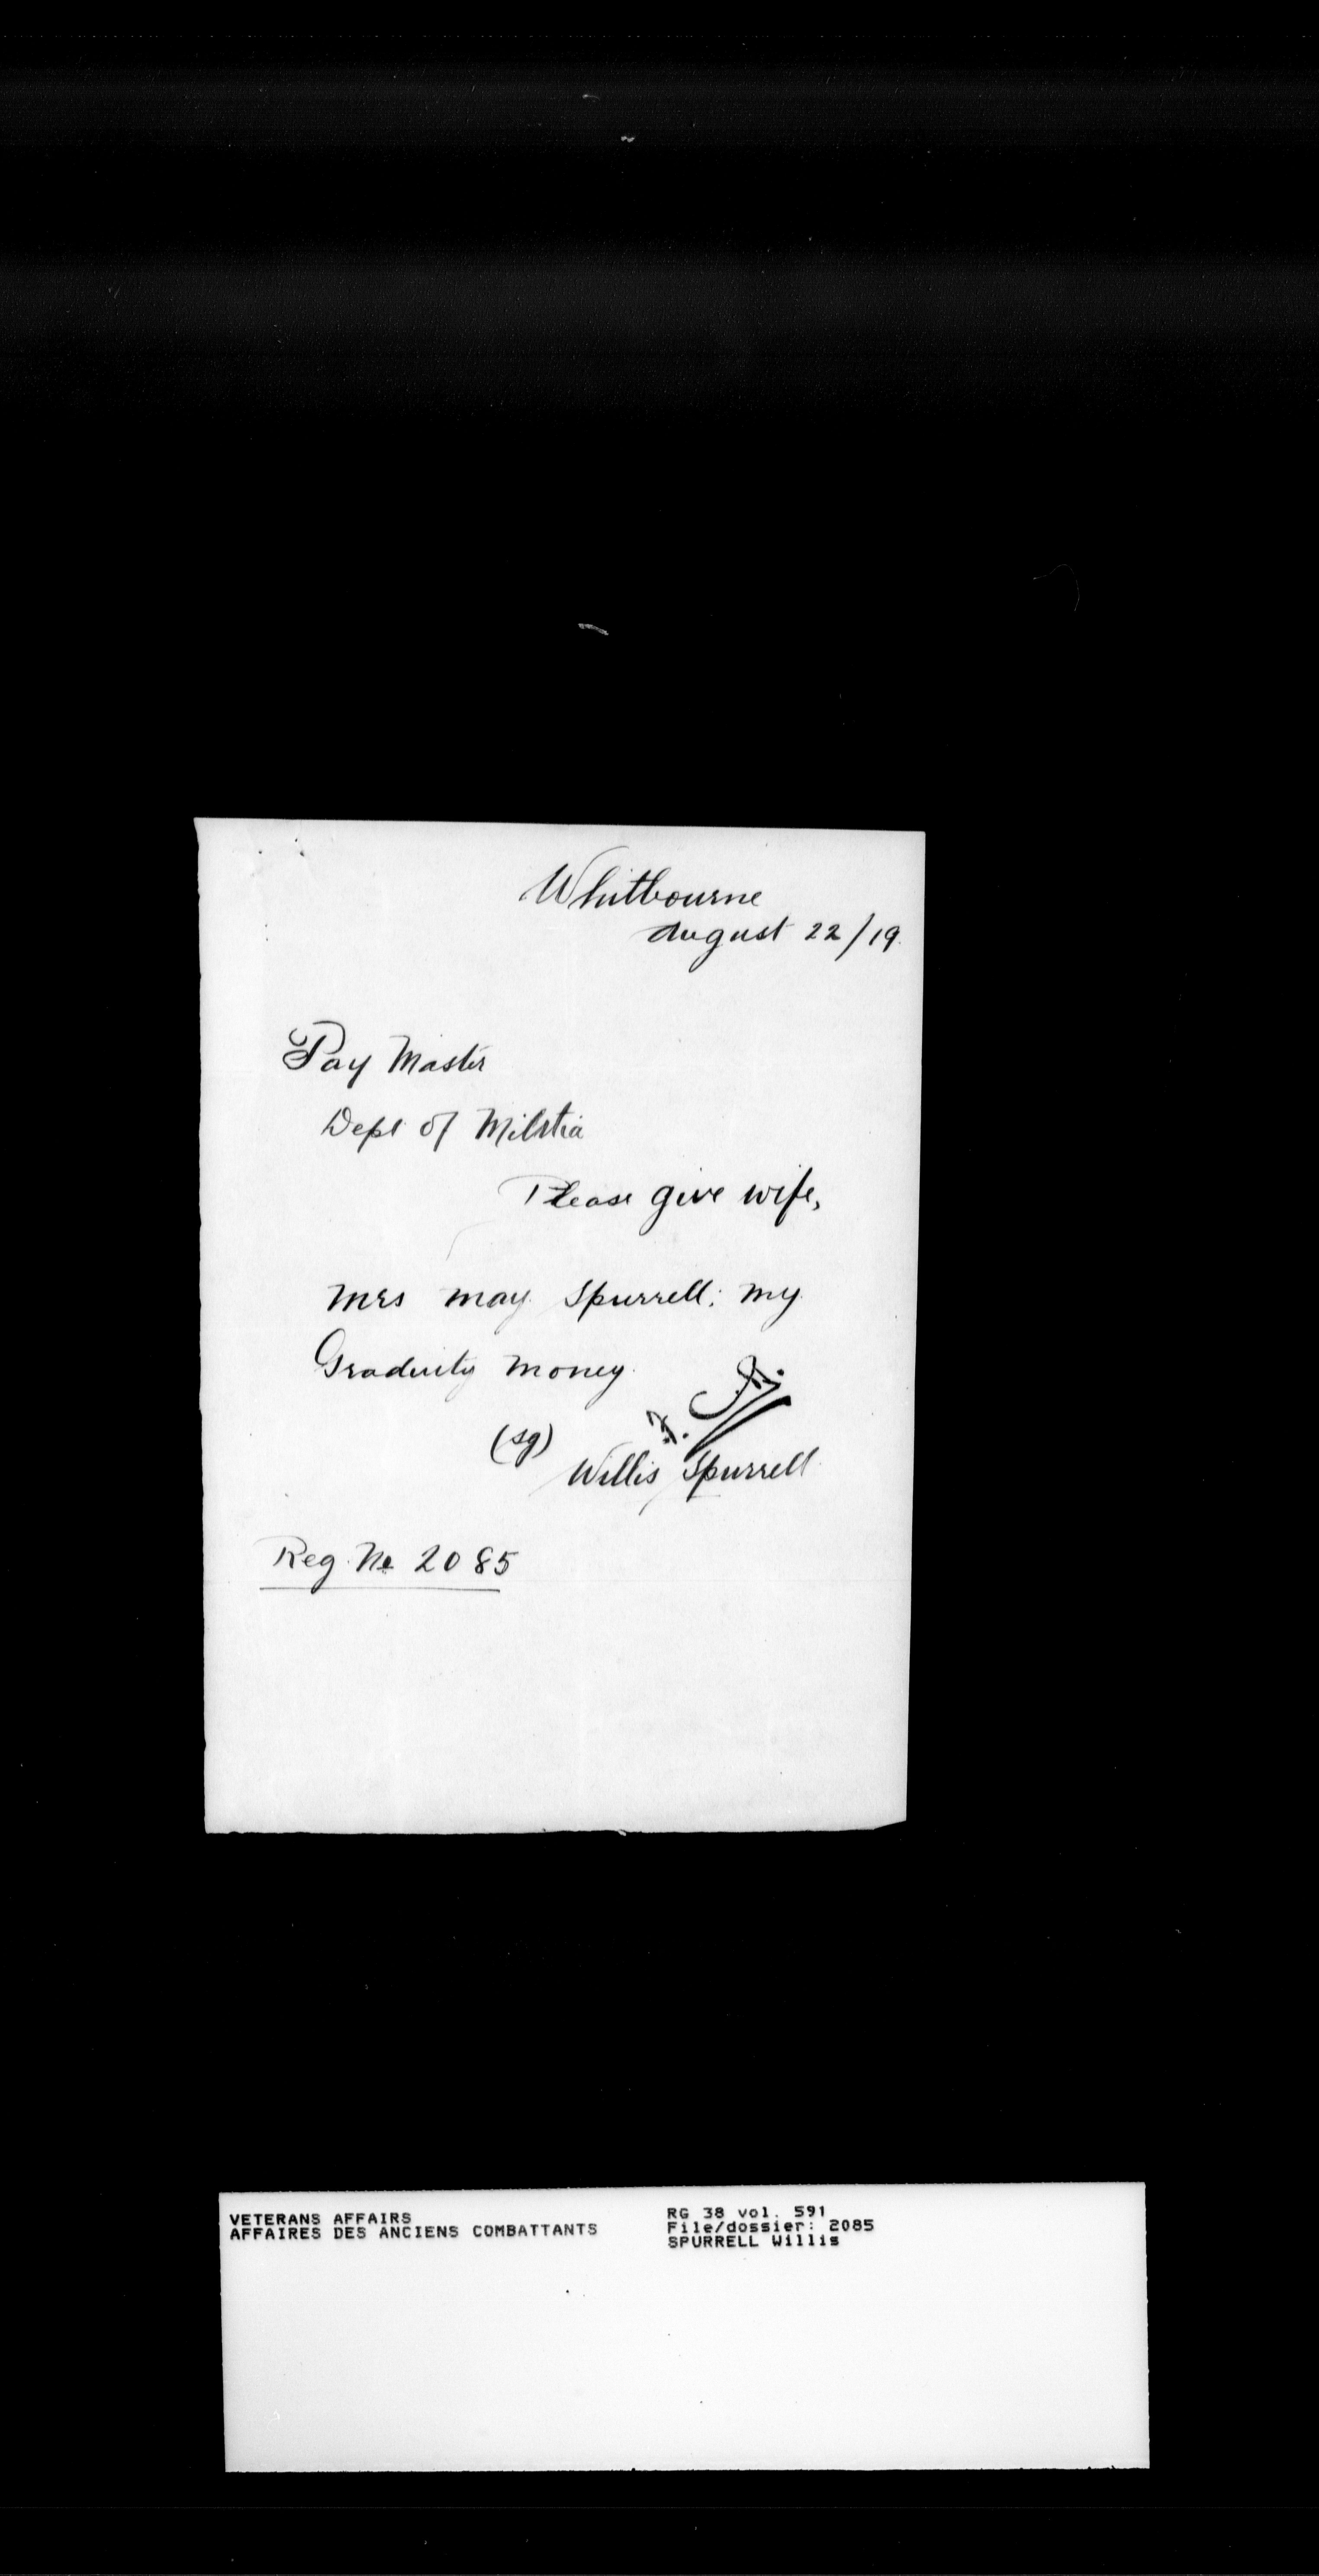 Whitbourne
August 22/19.
Pay Master
Dept of Militia
Please give wife,
Mrs May Spurrell; my
Graduity money.
(sg)
Willis Spurrell
Reg. No 2085
VETERANS AFFAIRS
AFFAIRES DES ANCIENS COMBATTANTS
RG 38 vol. 591
File/dossier: 2085
SPURRELL Willis